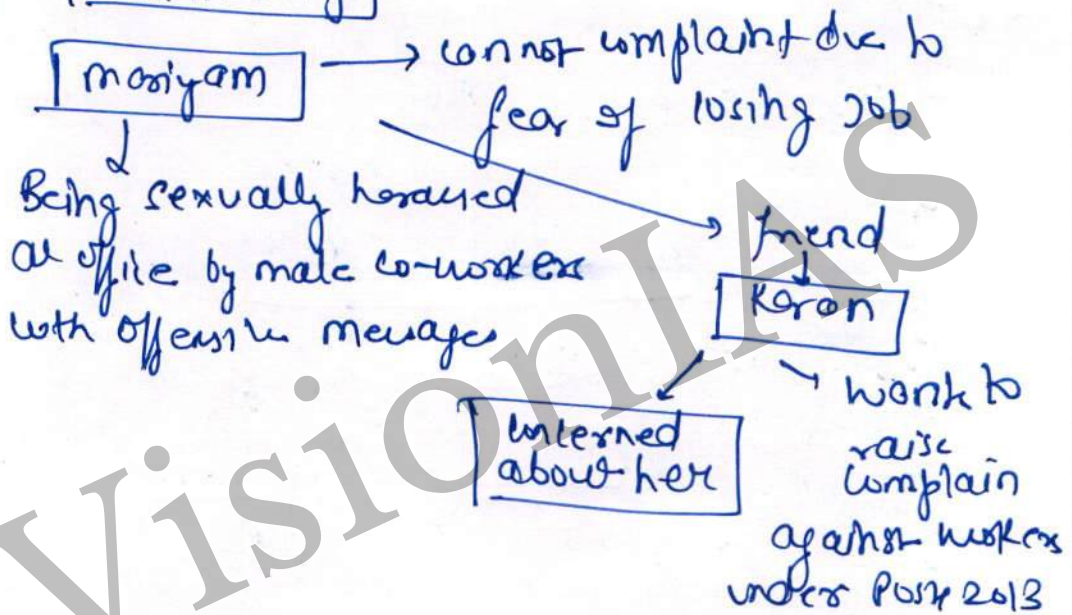 mariyam
→ cannot complaint due to
fear of losing Job
Being sexually harassed
at office by male co-workers
with offensive messages
friend
Karan
concerned
about her
want to
raise
complain
against workers
under Posh 2013
VisionIAS